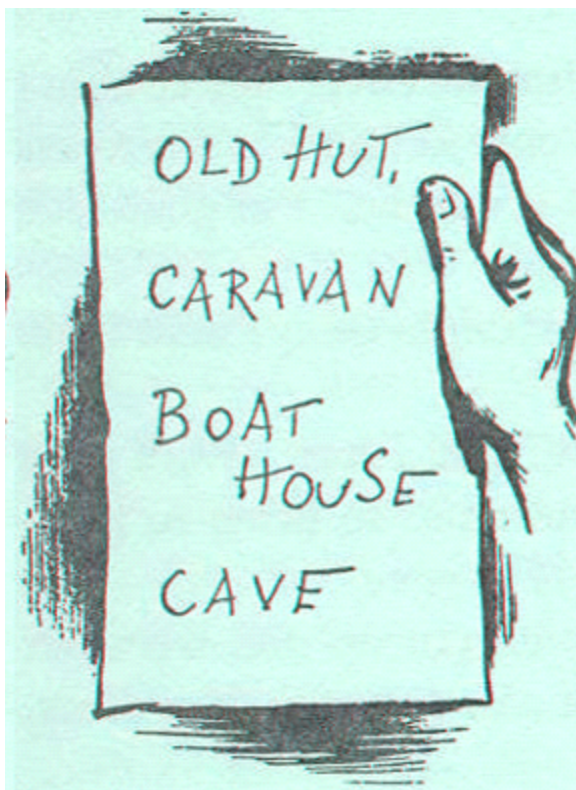 OLD HUT.
CARAVAN
BOAT
HOUSE
CAVE